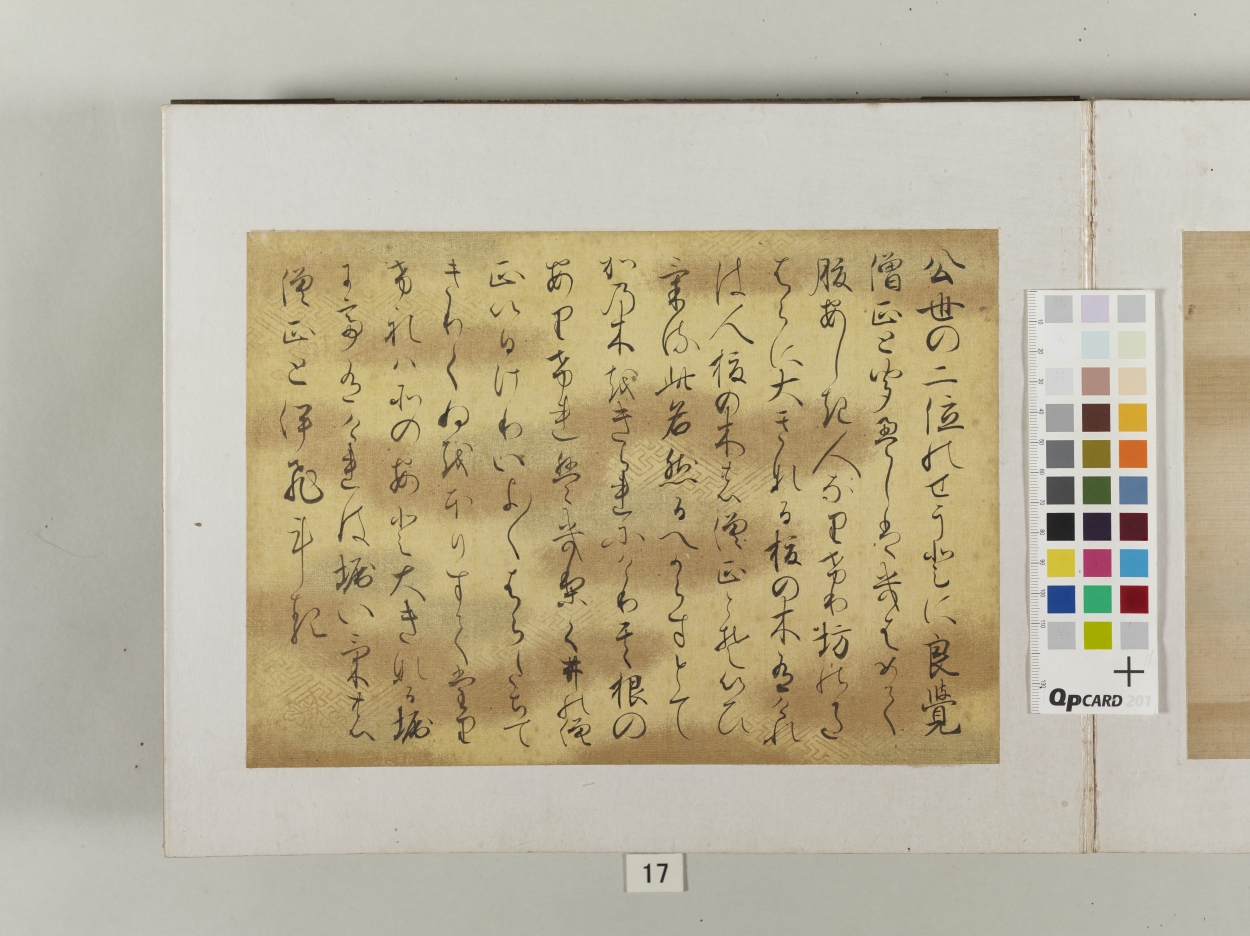 公世の二位のせうとに良覺
僧正と聞えしはきはめて
腹あしき人なりけり坊のかた
はらに大きなる榎の木有けれ
は人榎の木の僧正とそいひ
ける此名然るへからすとて
かの木をきられにけり其根の
ありけれはきりくゐの僧
正といひけりいよ〱はらたちて
きりくゐをほりすてたり
けれはそのあと大きなる堀
にて有けれは堀いけの
僧正といひける
17
QPCARD 201